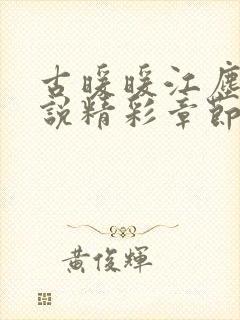 古暖暖江塵
說精彩章節
黃俊輝